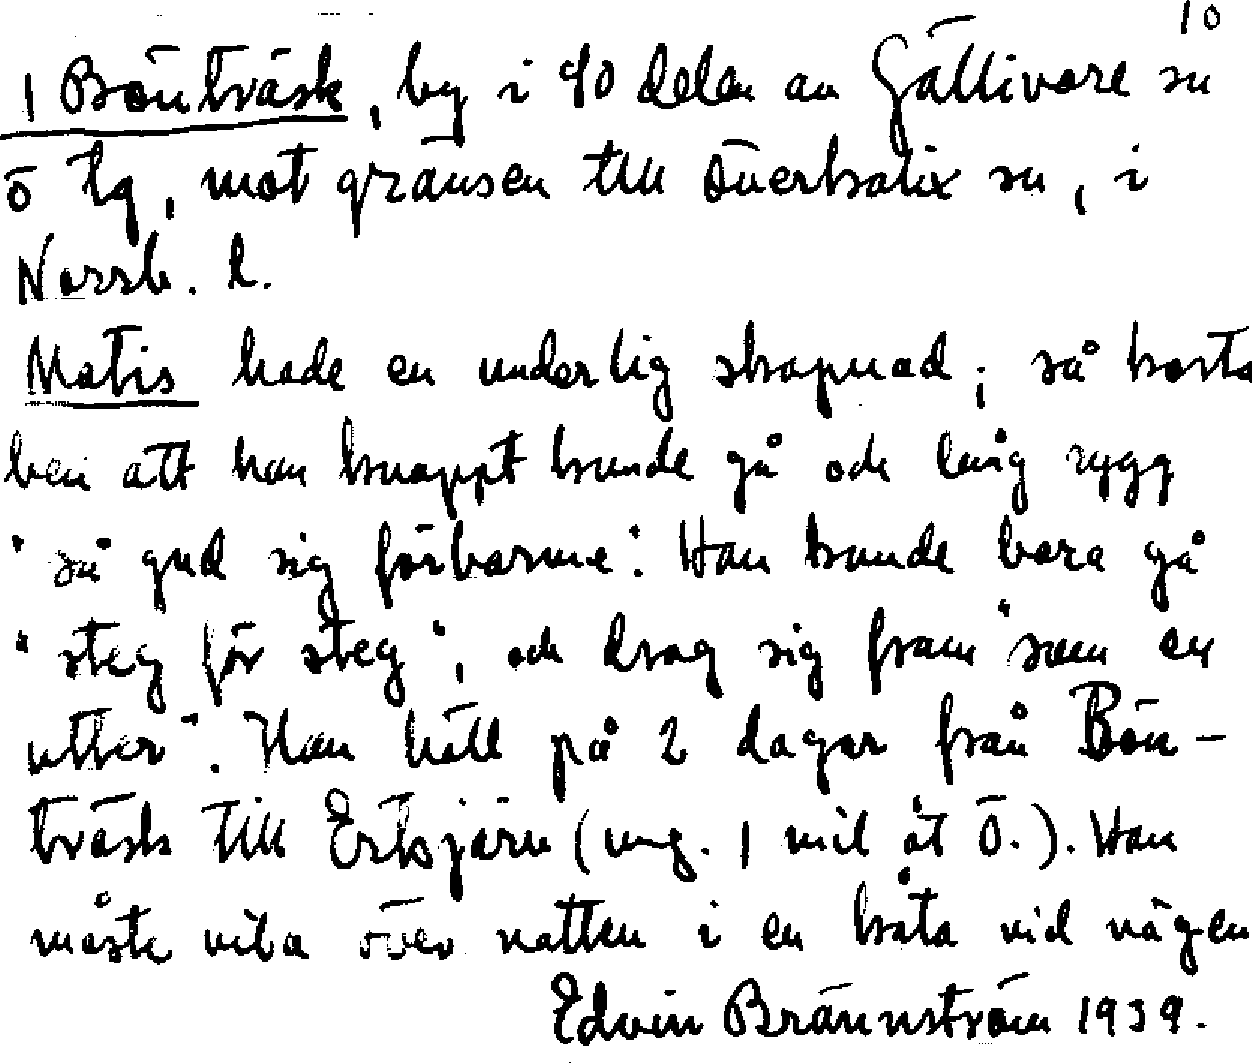 10
1 Bönträsk, by i SO delen av Gällivare sn
ö lg, mot gränsen till Överkalix sn, i
Norrb. l.
Matis hade en underlig skapnad; så korta
ben att han knappt kunde gå och lång rygg
"så gud sig förbarme". Han kunde bara gå
"steg för steg", och drog sig fram "som en
utter". Han höll på 2 dagar från Bön-
träsk till Ertsjärv (ung. 1 mil åt Ö.). Han
måste vila över natten i en kåta vid vägen
Edvin Brännström 1939.